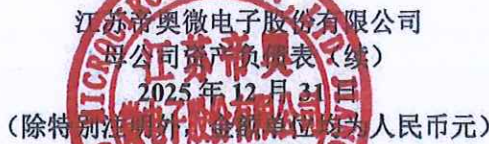 江苏帝奥微电子股份有限公司
母公司资产负债表（续）
2025年12月31日
（除特别注明外，金额单位均为人民币元）